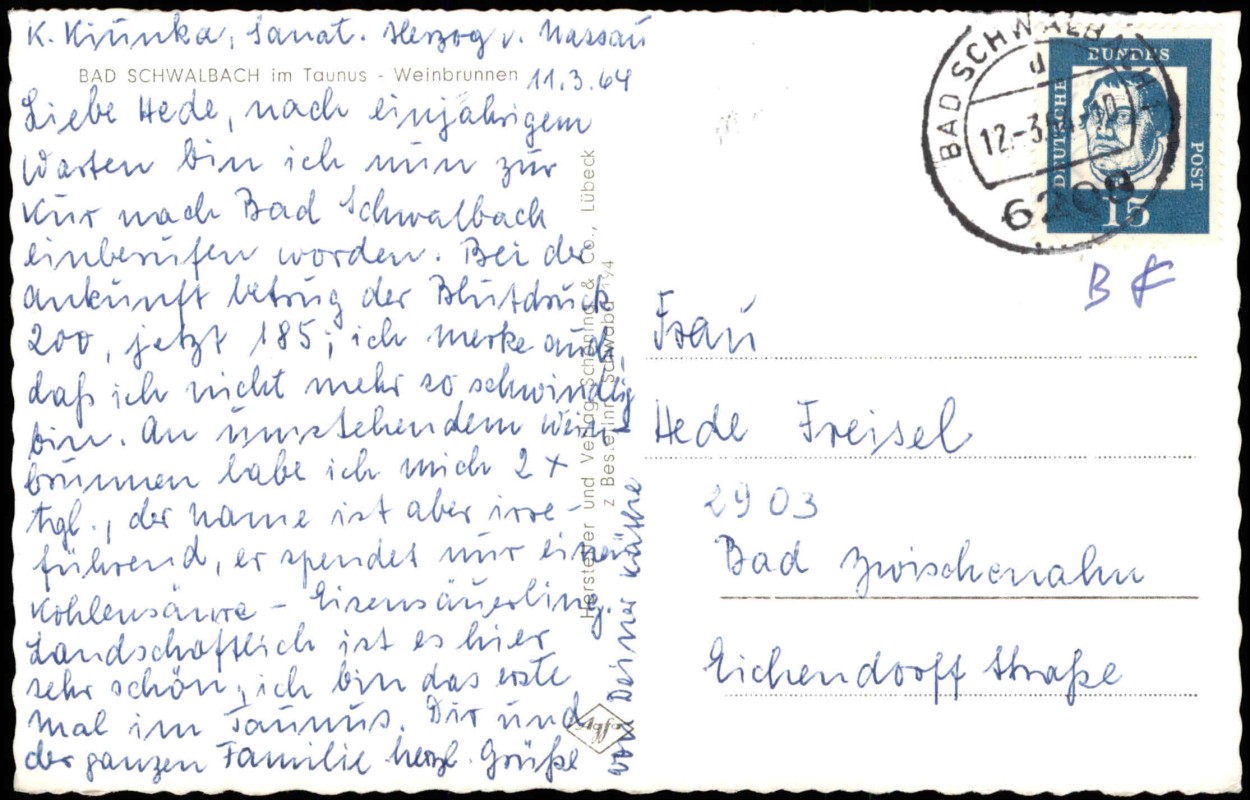 K. Kiunka, Sanat. Herzog v. Nassau
BAD SCHWALBACH im Taunus - Weinbrunnen
11.3.64
Liebe Hede, nach einjährigem
Warten bin ich nun zur
Kur nach Bad Schwalbach
einberufen worden. Bei der
Ankunft betrug der Blutdruck
200, jetzt 185; ich merke auch,
daß ich nicht mehr so schwindlig
bin. An umstehendem Wein-
brunnen labe ich mich 2 x
tgl., der Name ist aber irre-
führend, er spendet nur einen
Kohlensäure - Eisensäuerling.
Landschaftlich ist es hier
sehr schön, ich bin das erste
Mal im Taunus. Dir und
der ganzen Familie herzl. Grüße
von Deiner Käthe
Hersteller und Verlag Schöning & Co., Lübeck
z Bestellnr. Schwaba 194
Agfa
BAD SCHWALBACH 1
d
12.-3.64.-12
6208
DEUTSCHE
BUNDES
POST
15
B K
Frau
Hede Freisel
2903
Bad Zwischenahn
Eichendorff Straße